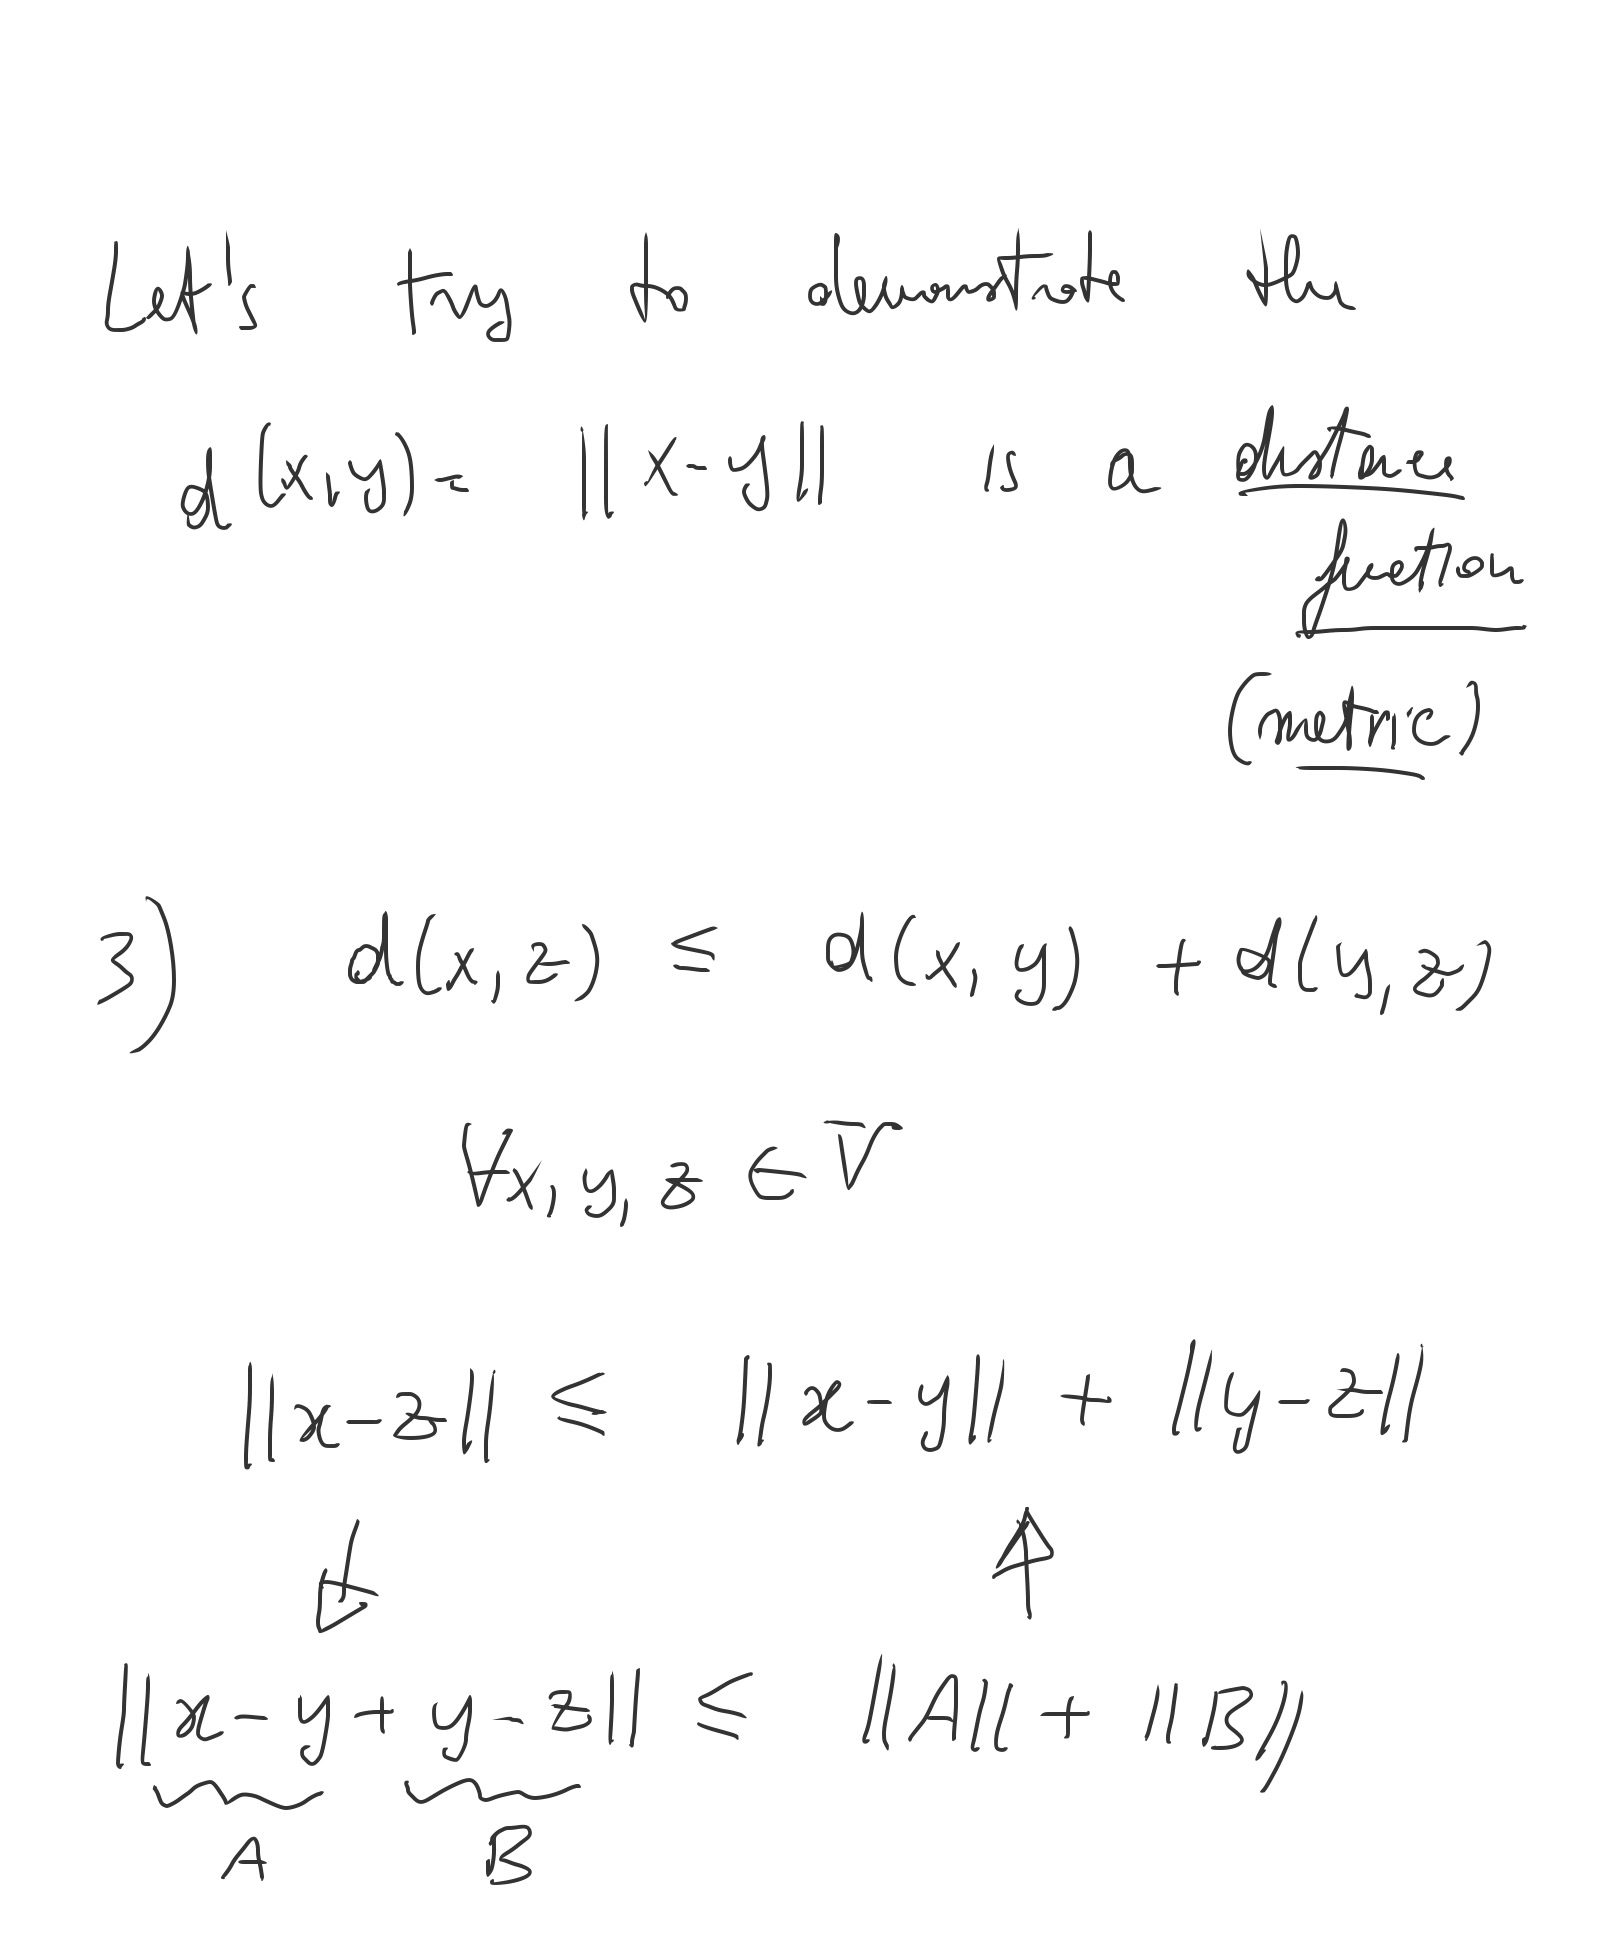 Let's try to demonstrate the
d(x,y) = ||x-y|| is a distance
function
(metric)
3) d(x,z) ≤ d(x,y) + d(y,z)
∀x, y, z ∈ V
||x-z|| ≤ ||x-y|| + ||y-z||
||x-y+y-z|| ≤ ||A|| + ||B||
A B